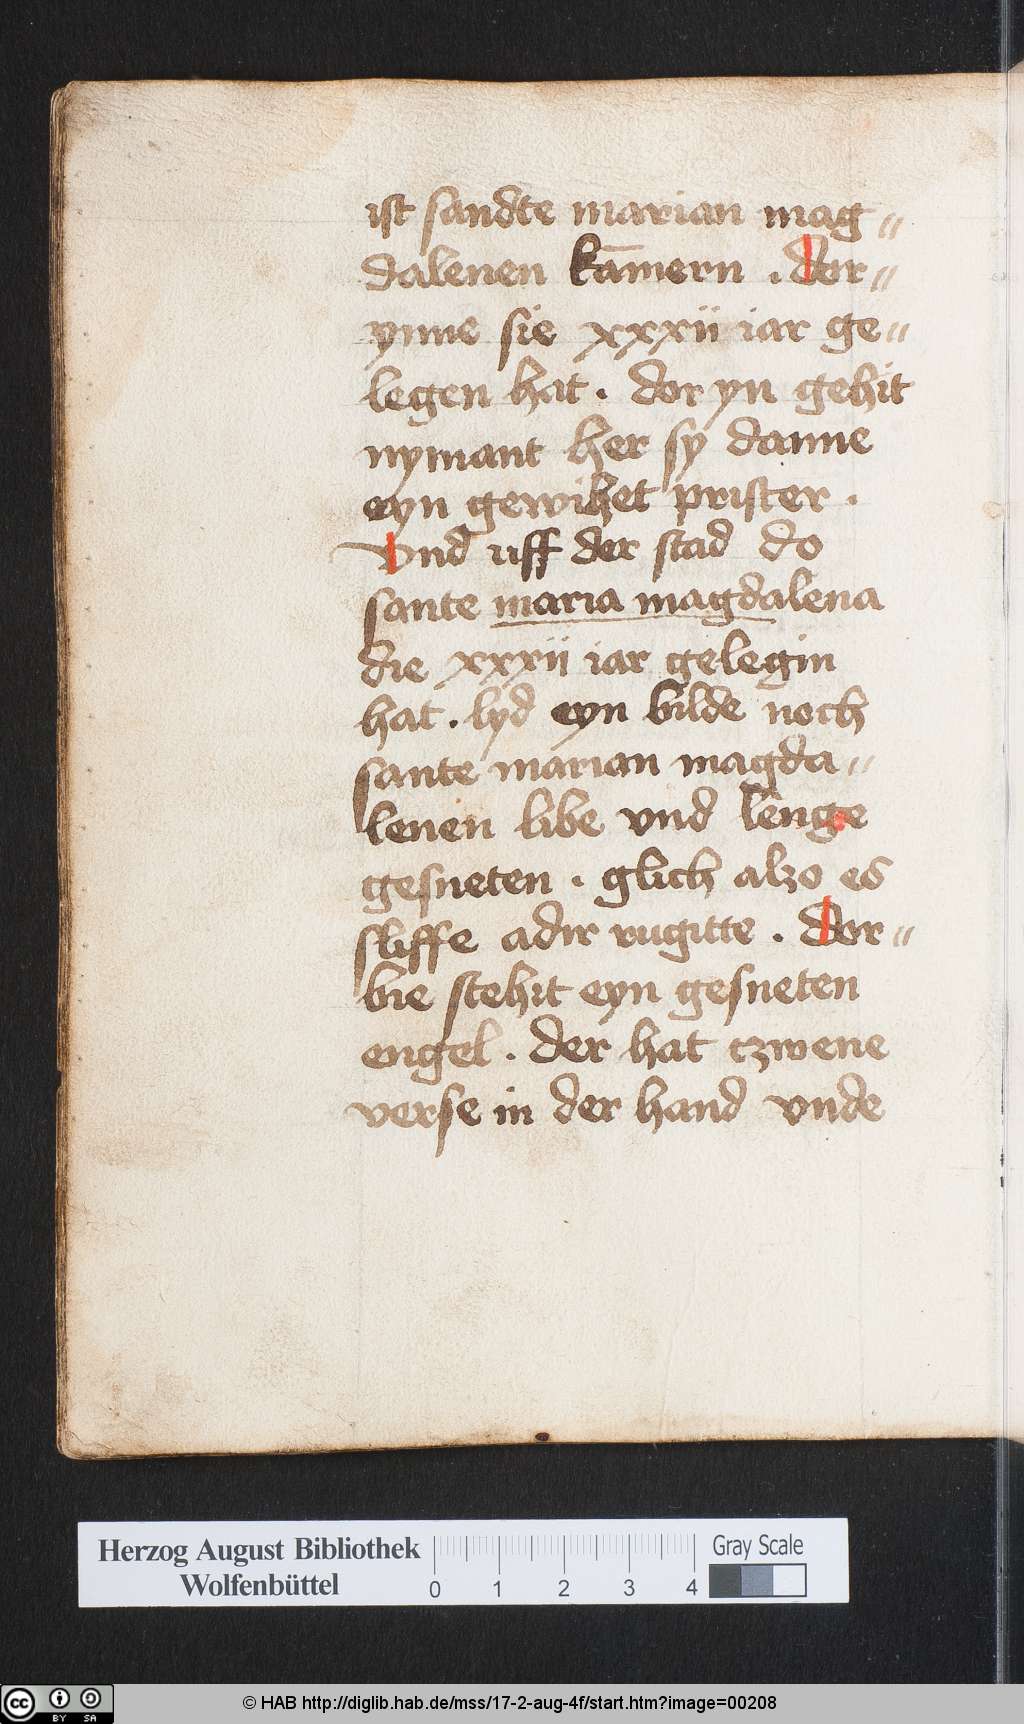 ist sandte marian mag〃
dalenen kāmern . dor〃
ynne sie xxxii iar ge〃
legen hat . dor yn gehit
nymant her sy danne
eyn gewihet prister .
Vnd uff der stad do
sante maria magdalena
die xxxii iar gelegin
hat . lyd eyn bilde noch
sante marian magda〃
lenen libe vnd lenge
gesneten . glich alzo es
sliffe adir rugitte . dor〃
bie stehit eyn gesneten
engel . der hat czwene
verse in der hand vnde
Herzog August Bibliothek
Wolfenbüttel
0 1 2 3 4
Gray Scale
cc BY SA
© HAB http://diglib.hab.de/mss/17-2-aug-4f/start.htm?image=00208